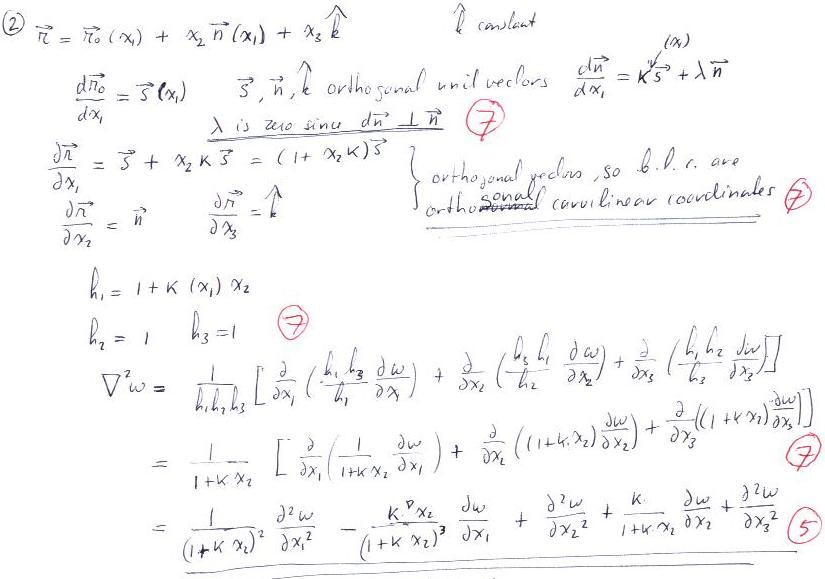 ② r⃗ = r⃗₀(x₁) + x₂ n⃗(x₁) + x₃ k̂   k̂ constant
dr⃗₀/dx₁ = s⃗(x₁)   s⃗, n⃗, k̂ orthogonal unit vectors   dn⃗/dx₁ = κ(x₁) s⃗ + λ n⃗
λ is zero since dn⃗ ⊥ n⃗   ⑦
∂r⃗/∂x₁ = s⃗ + x₂ κ s⃗ = (1 + x₂ κ) s⃗
∂r⃗/∂x₂ = n⃗   ∂r⃗/∂x₃ = k̂
} orthogonal vectors, so b.l.c. are
orthogonal curvilinear coordinates ⑦
h₁ = 1 + κ(x₁) x₂
h₂ = 1   h₃ = 1   ⑦
∇²w = 1/(h₁h₂h₃) [ ∂/∂x₁ (h₂h₃/h₁ ∂w/∂x₁) + ∂/∂x₂ (h₃h₁/h₂ ∂w/∂x₂) + ∂/∂x₃ (h₁h₂/h₃ ∂w/∂x₃) ]
= 1/(1+κx₂) [ ∂/∂x₁ (1/(1+κx₂) ∂w/∂x₁) + ∂/∂x₂ ((1+κx₂) ∂w/∂x₂) + ∂/∂x₃ ((1+κx₂) ∂w/∂x₃) ]   ⑦
= 1/(1+κx₂)² ∂²w/∂x₁² − κ'x₂/(1+κx₂)³ ∂w/∂x₁ + ∂²w/∂x₂² + κ/(1+κx₂) ∂w/∂x₂ + ∂²w/∂x₃²   ⑤